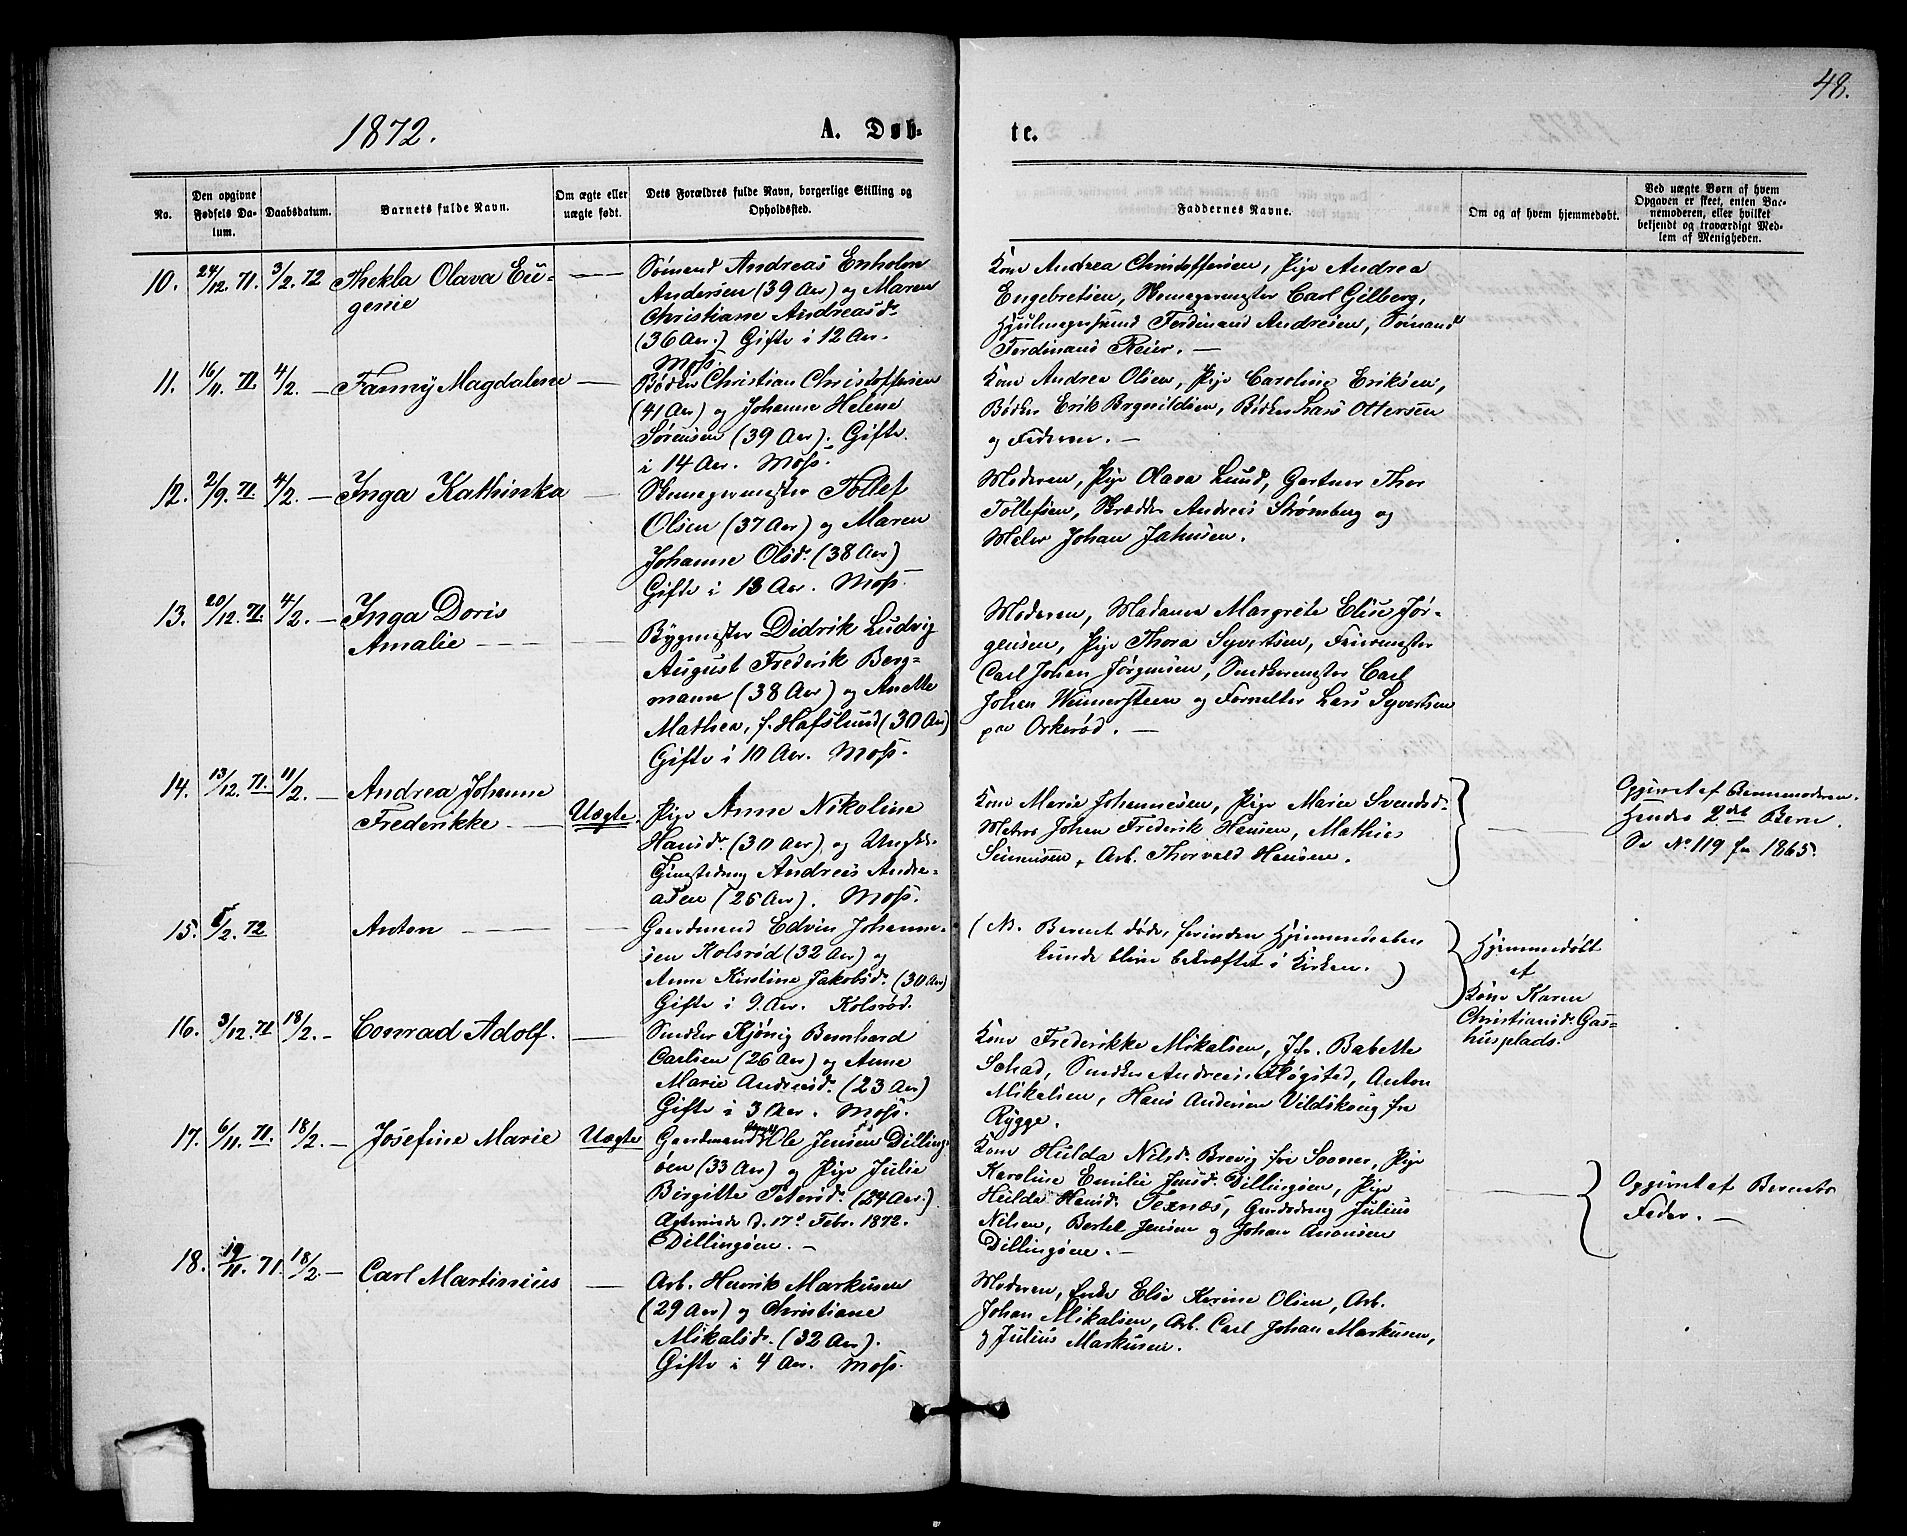 48.
1872.
A. Døb-
te.
No.
Den opgivne Fødsels Datum.
Daabsdatum.
Barnets fulde Navn.
Om ægte eller uægte født.
Dets Forældres fulde Navn, borgerlige Stilling og Opholdssted.
Faddernes Navne.
Om og af hvem hjemmedøbt.
Ved uægte Børn af hvem Opgaven er skeet, enten Barnemoderen, eller hvilket bekjendt og troværdigt Medlem af Menigheden.
10. 24/12. 71. 3/2. 72 Thekla Olava Eu-
genie
Sømand Andreas Enholm
Andersen (39 Aar) og Maren
Christiane Andreasd.
(36 Aar.) Gifte i 12 Aar.
Moss.
Kone Andrea Christoffersen, Pige Andrea
Engebretsen, Skomagermester Carl Gilberg,
Hjulmagersvend Ferdinand Andresen, Sømand
Ferdinand Reier. —
11. 16/11. 71. 4/2. — Fanny Magdalene —
Bødker Christian Christoffersen
(41 Aar) og Johanne Helene
Sørensen (39 Aar). Gifte
i 14 Aar. Moss.
Kone Andrea Olsen, Pige Caroline Eriksen,
Bødker Erik Brynildsen, Bødker Lars Ottersen
og Faderen. —
12. 2/9. 71 4/2. — Inga Kathinka —
Skomagermester Tollef
Olsen (37 Aar) og Maren
Johanne Olsd. (38 Aar)
Gifte i 13 Aar. Moss.
Moderen, Pige Olava Lund, Gartner Thor
Tollefsen, Skrædder Andreas Strømberg og
Maler Johan Jahnsen.
13. 20/12. 71. 4/2. — Inga Doris
Amalie — —
Bygmester Didrik Ludvig
August Frederik Berg-
mann (38 Aar) og Anette
Mathea, f. Hafslund (30 Aar)
Gifte i 10 Aar. Moss.
Moderen, Madame Margrete Elise Jør-
gensen, Pige Thora Syvertsen,
Carl Johan Jørgensen, Snedkermester Carl
Johan Weinersteen og Forvalter Lars Syvertsen
paa Orkerød. —
14. 13/12. 71. 11/2. — Andrea Johanne
Frederikke — Uægte.
Pige Anne Nikoline
Hansd. (30 Aar) og Ungk.
Andreas Andre-
asen (26 Aar). Moss.
Kone Marie Johannesen, Pige Maren Svendsd.
Matros Johan Frederik Hansen, Mathias
Simensen, Arb. Thorvald Hansen.
Opgivet af Barnemoderen.
Hendes 2det Barn.
Se No 119 for 1865.
15. 5/2. 72 Anton — — —
Gaardmand Edvin Johanne-
sen Kolsrød (32 Aar) og
Anne Kirstine Jakobsd. (30 Aar)
Gifte i 9 Aar. Kolsrød.
(NB. Barnet døde, førinden Hjemmedaaben
kunde blive bekræftet i Kirken. )
Hjemmedøbt
af
Kone Karen
Christiansd. Gas-
husplads.
16. 3/12. 71 18/2. — Conrad Adolf. —
Snedker Kjønig Bernhard
Carlsen (26 Aar) og Anne
Marie Andreasd. (23 Aar)
Gifte i 3 Aar. Moss.
Kone Frederikke Mikalsen, Jfr. Babette
Schad, Snedker Andreas Fløgstad, Anton
Mikalsen, Hans Andersen Vildskoug fra
Rygge.
17. 6/11. 71. 18/2. — Josefine Marie Uægte
Gaardmand Ole Jensen Dilling-
øen (33 Aar) og Pige Julie
Birgitte Petersd. (24 Aar.)
Ægteviede d. 17de Febr. 1872.
Dillingøen. —
Kone Hulda Nilsd. Brevig fra Sooner, Pige
Karoline Emilie Jensd. Dillingøen, Pige
Hulda Hansd. Texnæs, Gaardsdreng Julius
Nilsen, Bertel Jensen og Johan Anonsen
Dillingøen. —
Opgivet af Barnets
Fader. —
18. 19/11. 71. 18/2. — Carl Martinius —
Arb. Henrik Markusen
(29 Aar) og Christiane
Mikalsd. (32 Aar).
Gifte i 4 Aar. Moss.
Moderen, Enke Else Karine Olsen, Arb.
Johan Mikalsen, Arb. Carl Johan Markusen,
og Julius Markusen.